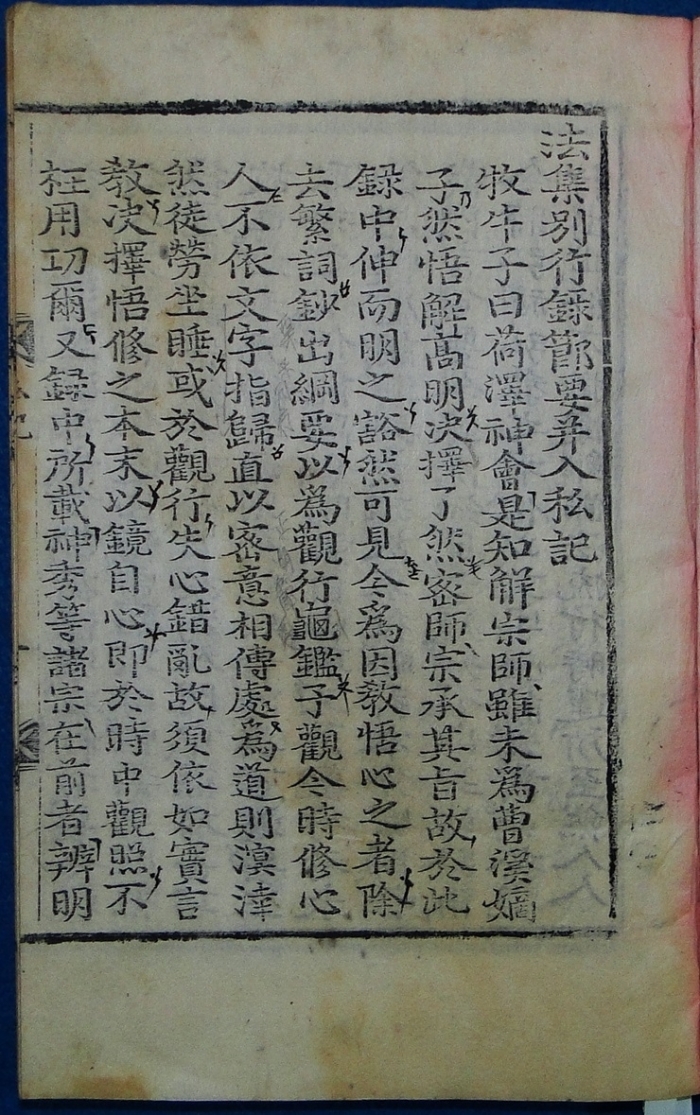 法集別行錄節要并入私記
牧牛子曰荷澤神會是知解宗師雖未爲曹溪嫡
子然悟解高明决擇了然密師宗承其旨故於此
録中伸而明之豁然可見今爲因教悟心之者除
去繁詞鈔出綱要以爲觀行龜鑑予觀今時修心
人不依文字指歸直以密意相傳處爲道則溟涬
然徒勞坐睡或於觀行失心錯亂故須依如實言
教决擇悟修之本末以鏡自心即於時中觀照不
枉用功爾又録中所載神秀等諸宗在前者辨明